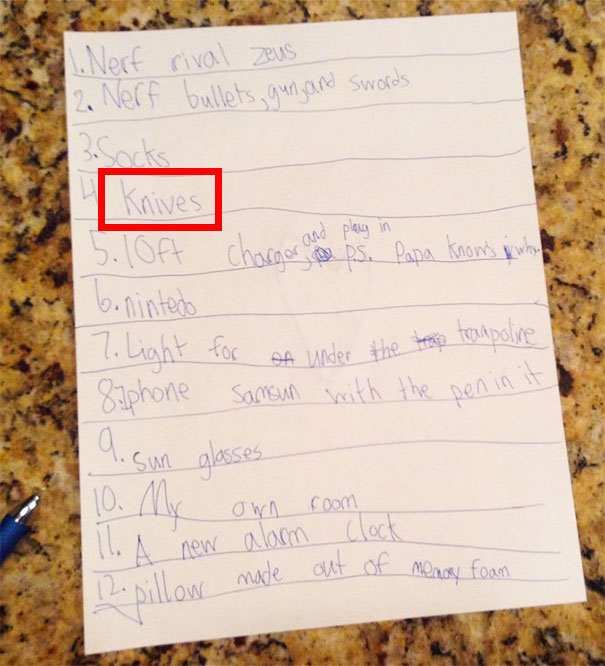 1. Nerf rival zeus
2. Nerf bullets, gun, and swords
3. Socks
4. Knives
5. 10ft charger, and plug in ps. Papa knows why.
6. nintedo
7. Light for under the trampoline
8. Iphone Samsun with the pen in it
9. sun glasses
10. My own room
11. A new alarm clock
12. pillow made out of memory foam